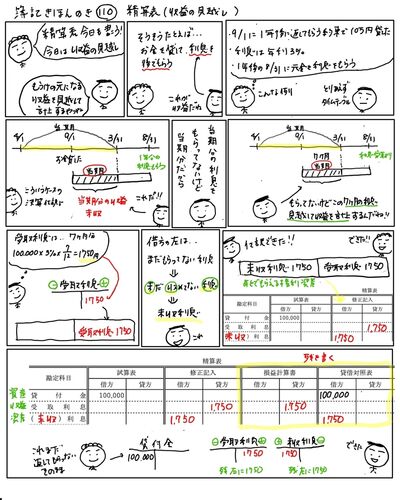 簿記きほんのき 110 精算表(収益の見越し)
精算表今日も習う!
今日は収益の見越し
もうけの元になる
収益を見越して
計上するやつか
そうそうたとえば…
お金を貸して、利息を
待てもらう
これが
収益だね
・9/1に1年後に返してもらう約束で10万円貸した
・利息は年利3%
・1年後の8/31に元金と利息をもらう
こんな取引
とりあえず
タイムテーブル
当期
4/1 9/1 3/31 8/31
お金貸した
当期分
1年分の
利息もらう
こういうケースの
決算にね
当期分の収益
未収
これだ!!
当期分の利息を
もらってないけど
当期分だから
当期
4/1 9/1 3/31 8/31
7ヶ月
当期分
利息受取り
もらってないけどこの7ヶ月分を
見越して収益を計上するんだね!!
受取利息は…7ヶ月は
100,000×3%×7/12=1750円
⊖受取利息⊕
1750
受取利息 1750
借方の左は…
まだもらってない利息
↓
まだ収入してない利息
↓
未収利息
仕訳できた!!
できた!!
未収利息 1750 受取利息 1750
あとでもらえる権利 資産
試算表 修正記入
勘定科目 借方 貸方 借方 貸方
貸付金 100,000
受取利息 1,750
(未収)利息 1750
移を書く
精算表
勘定科目 試算表 修正記入 損益計算書 貸借対照表
借方 貸方 借方 貸方 借方 貸方 借方 貸方
資産 貸付金 100,000 100,000
収益 受取利息 1,750 1,750
資産 (未収)利息 1,750 1,750
これまだ
返してもらってない
そのまま
貸付金
100,000
⊖受取利息⊕
1750
残右に1750
⊕未収利息⊖
1750
残左に1750
できた